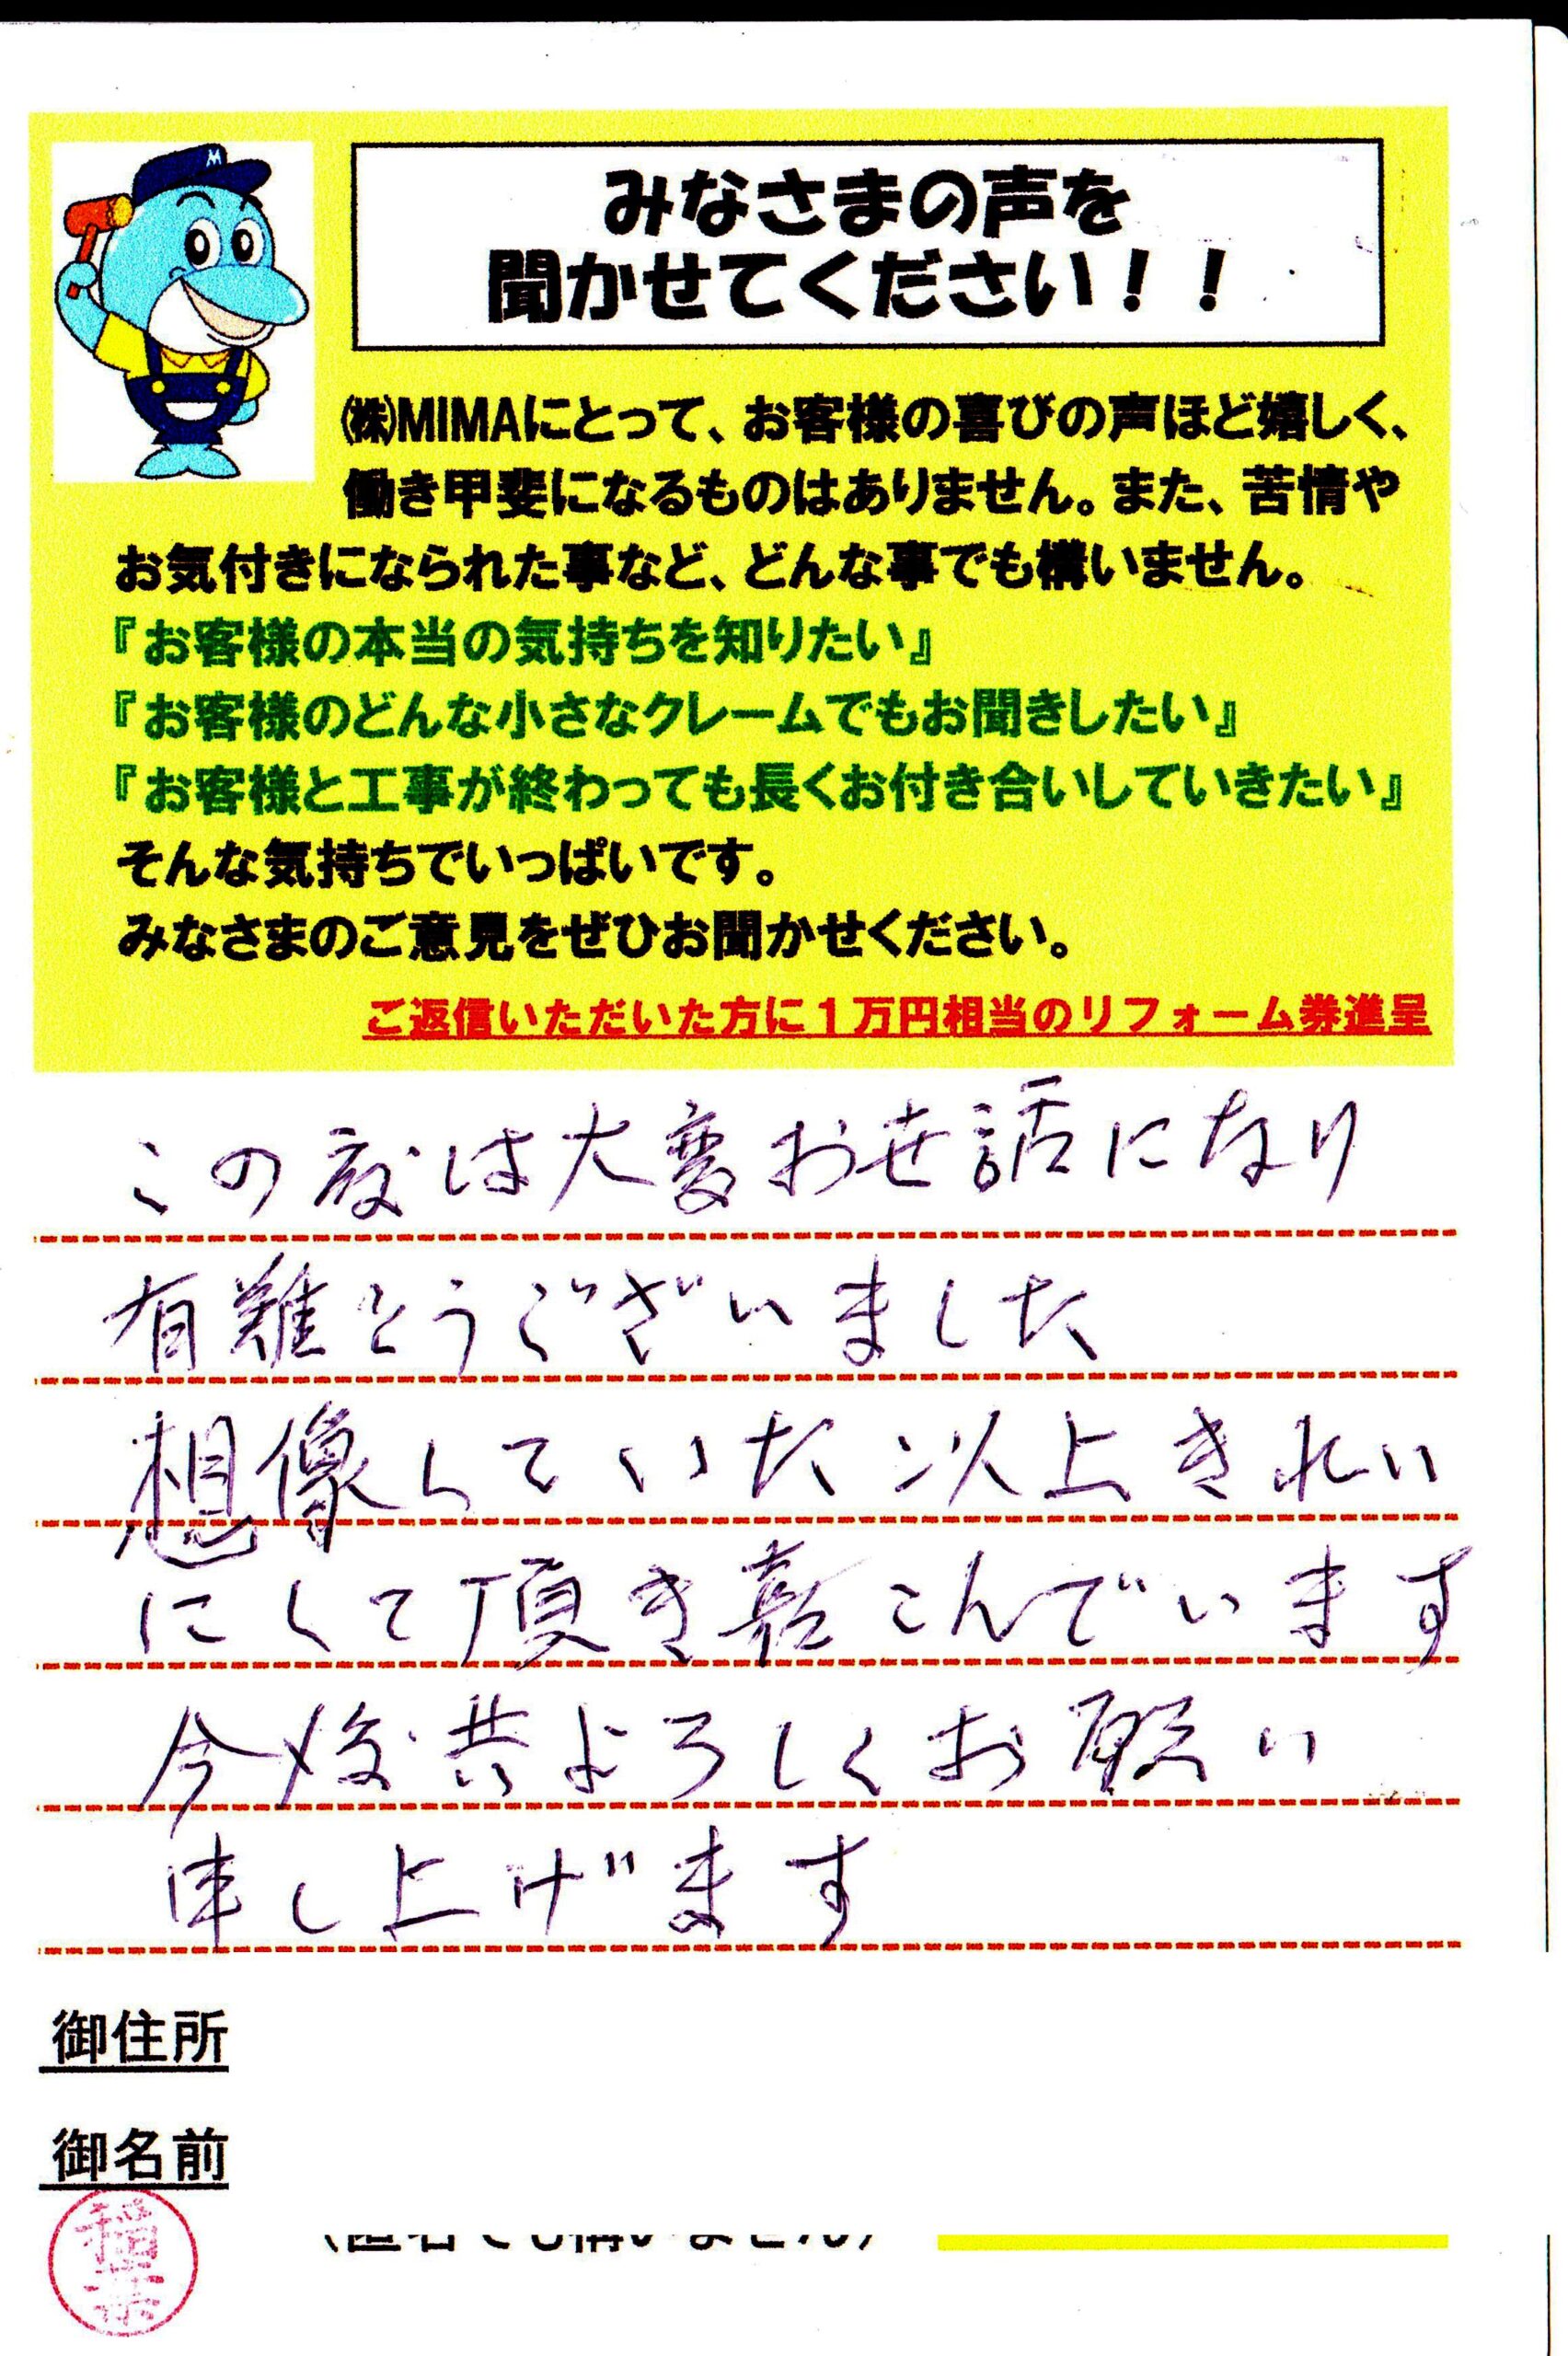 M
みなさまの声を
聞かせてください！！
㈱MIMAにとって、お客様の喜びの声ほど嬉しく、
働き甲斐になるものはありません。また、苦情や
お気付きになられた事など、どんな事でも構いません。
『お客様の本当の気持ちを知りたい』
『お客様のどんな小さなクレームでもお聞きしたい』
『お客様と工事が終わっても長くお付き合いしていきたい』
そんな気持ちでいっぱいです。
みなさまのご意見をぜひお聞かせください。
ご返信いただいた方に１万円相当のリフォーム券進呈
この度は大変お世話になり
有難とうございました
想像していた以上きれい
にして頂き喜こんでいます
今後共よろしくお願い
申し上げます
御住所
御名前
稲葉